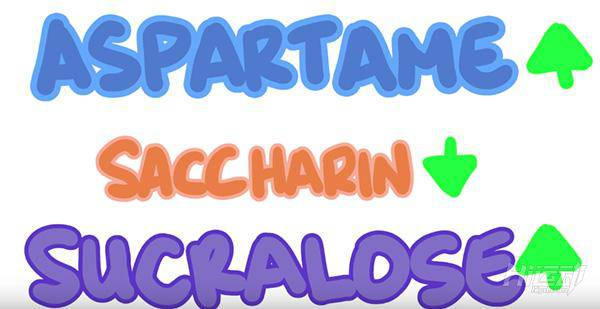 ASPARTAME
SACCHARIN
SUCRALOSE
Hi运动